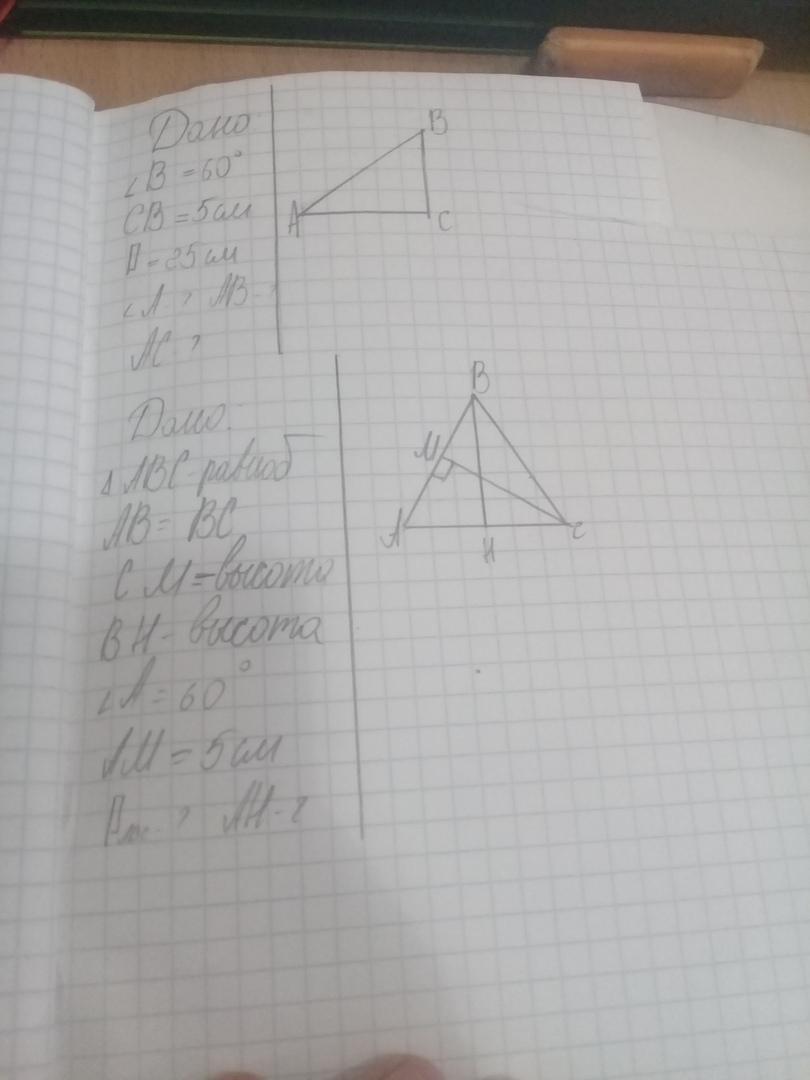 Дано
∠B = 60°
CB = 5 см
P = 25 см
∠A ? AB - ?
AC ?
B
A
C
Дано:
Δ ABC - равноб
AB = BC
CM = высота
BH - высота
∠A = 60°
AM = 5 см
? AH - ?
B
M
A
H
C